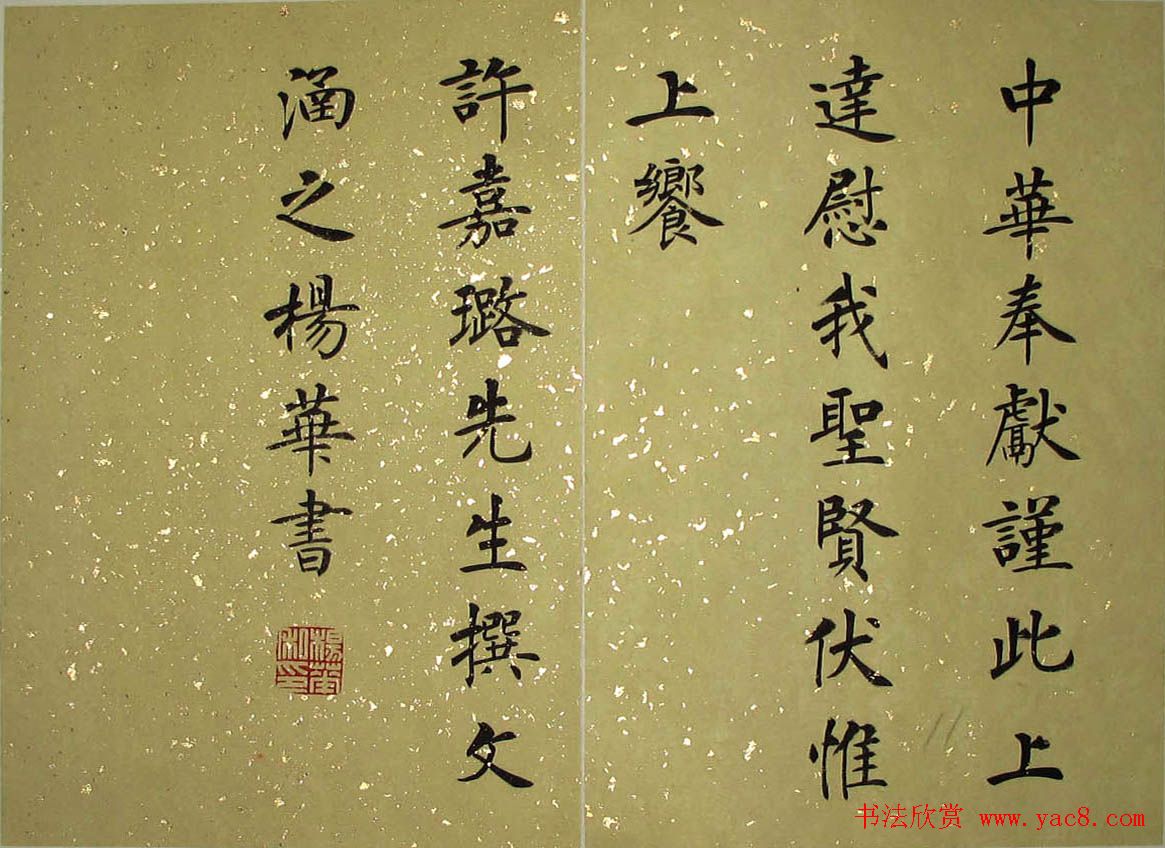 中華奉獻謹此上
達慰我聖賢伏惟
上饗
許嘉璐先生撰文
涵之楊華書
11
书法欣赏 www.yac8.com